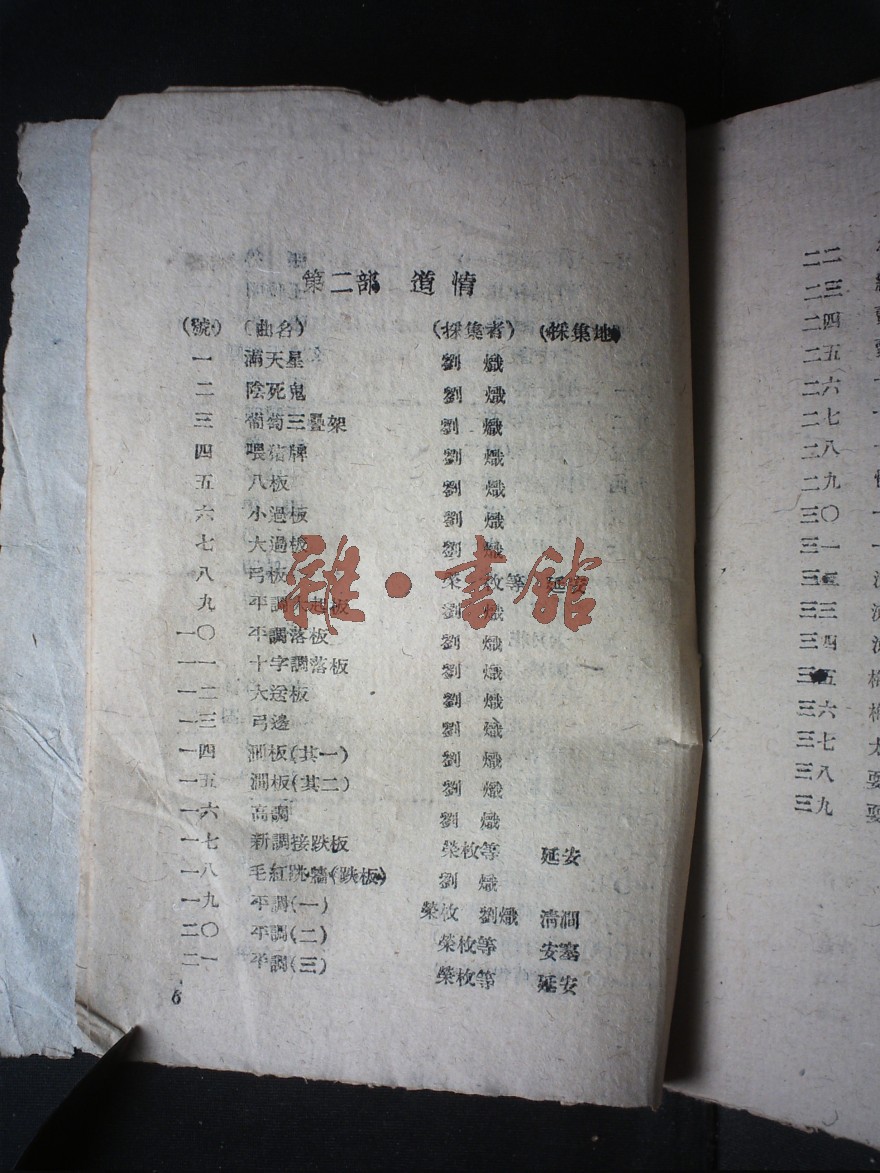 第二部 道情
(號) (曲名) (採集者) (採集地)
一 滿天星 劉 熾
二 陰死鬼 劉 熾
三 葡萄三疊架 劉 熾
四 喂猪牌 劉 熾
五 八板 劉 熾
六 小過板 劉 熾
七 大過板 劉 熾
八 弓板 等 延安
九 平調 起板 劉 熾
一〇 平調落板 劉 熾
一一 十字調落板 劉 熾
一二 大送板 劉 熾
一三 弓邊 劉 熾
一四 澗板(其一) 劉 熾
一五 澗板(其二) 劉 熾
一六 高調 劉 熾
一七 新調接跌板 榮枚等 延安
一八 毛紅跳牆(跌板) 劉 熾
一九 平調(一) 榮枚 劉熾 清澗
二〇 平調(二) 榮枚等 安塞
二一 平調(三) 榮枚等 延安
6
雜·書館
二二
二三
二四
二五
二六
二七
二八
二九
三〇
三一
三三
三四
三五
三六
三七
三八
三九